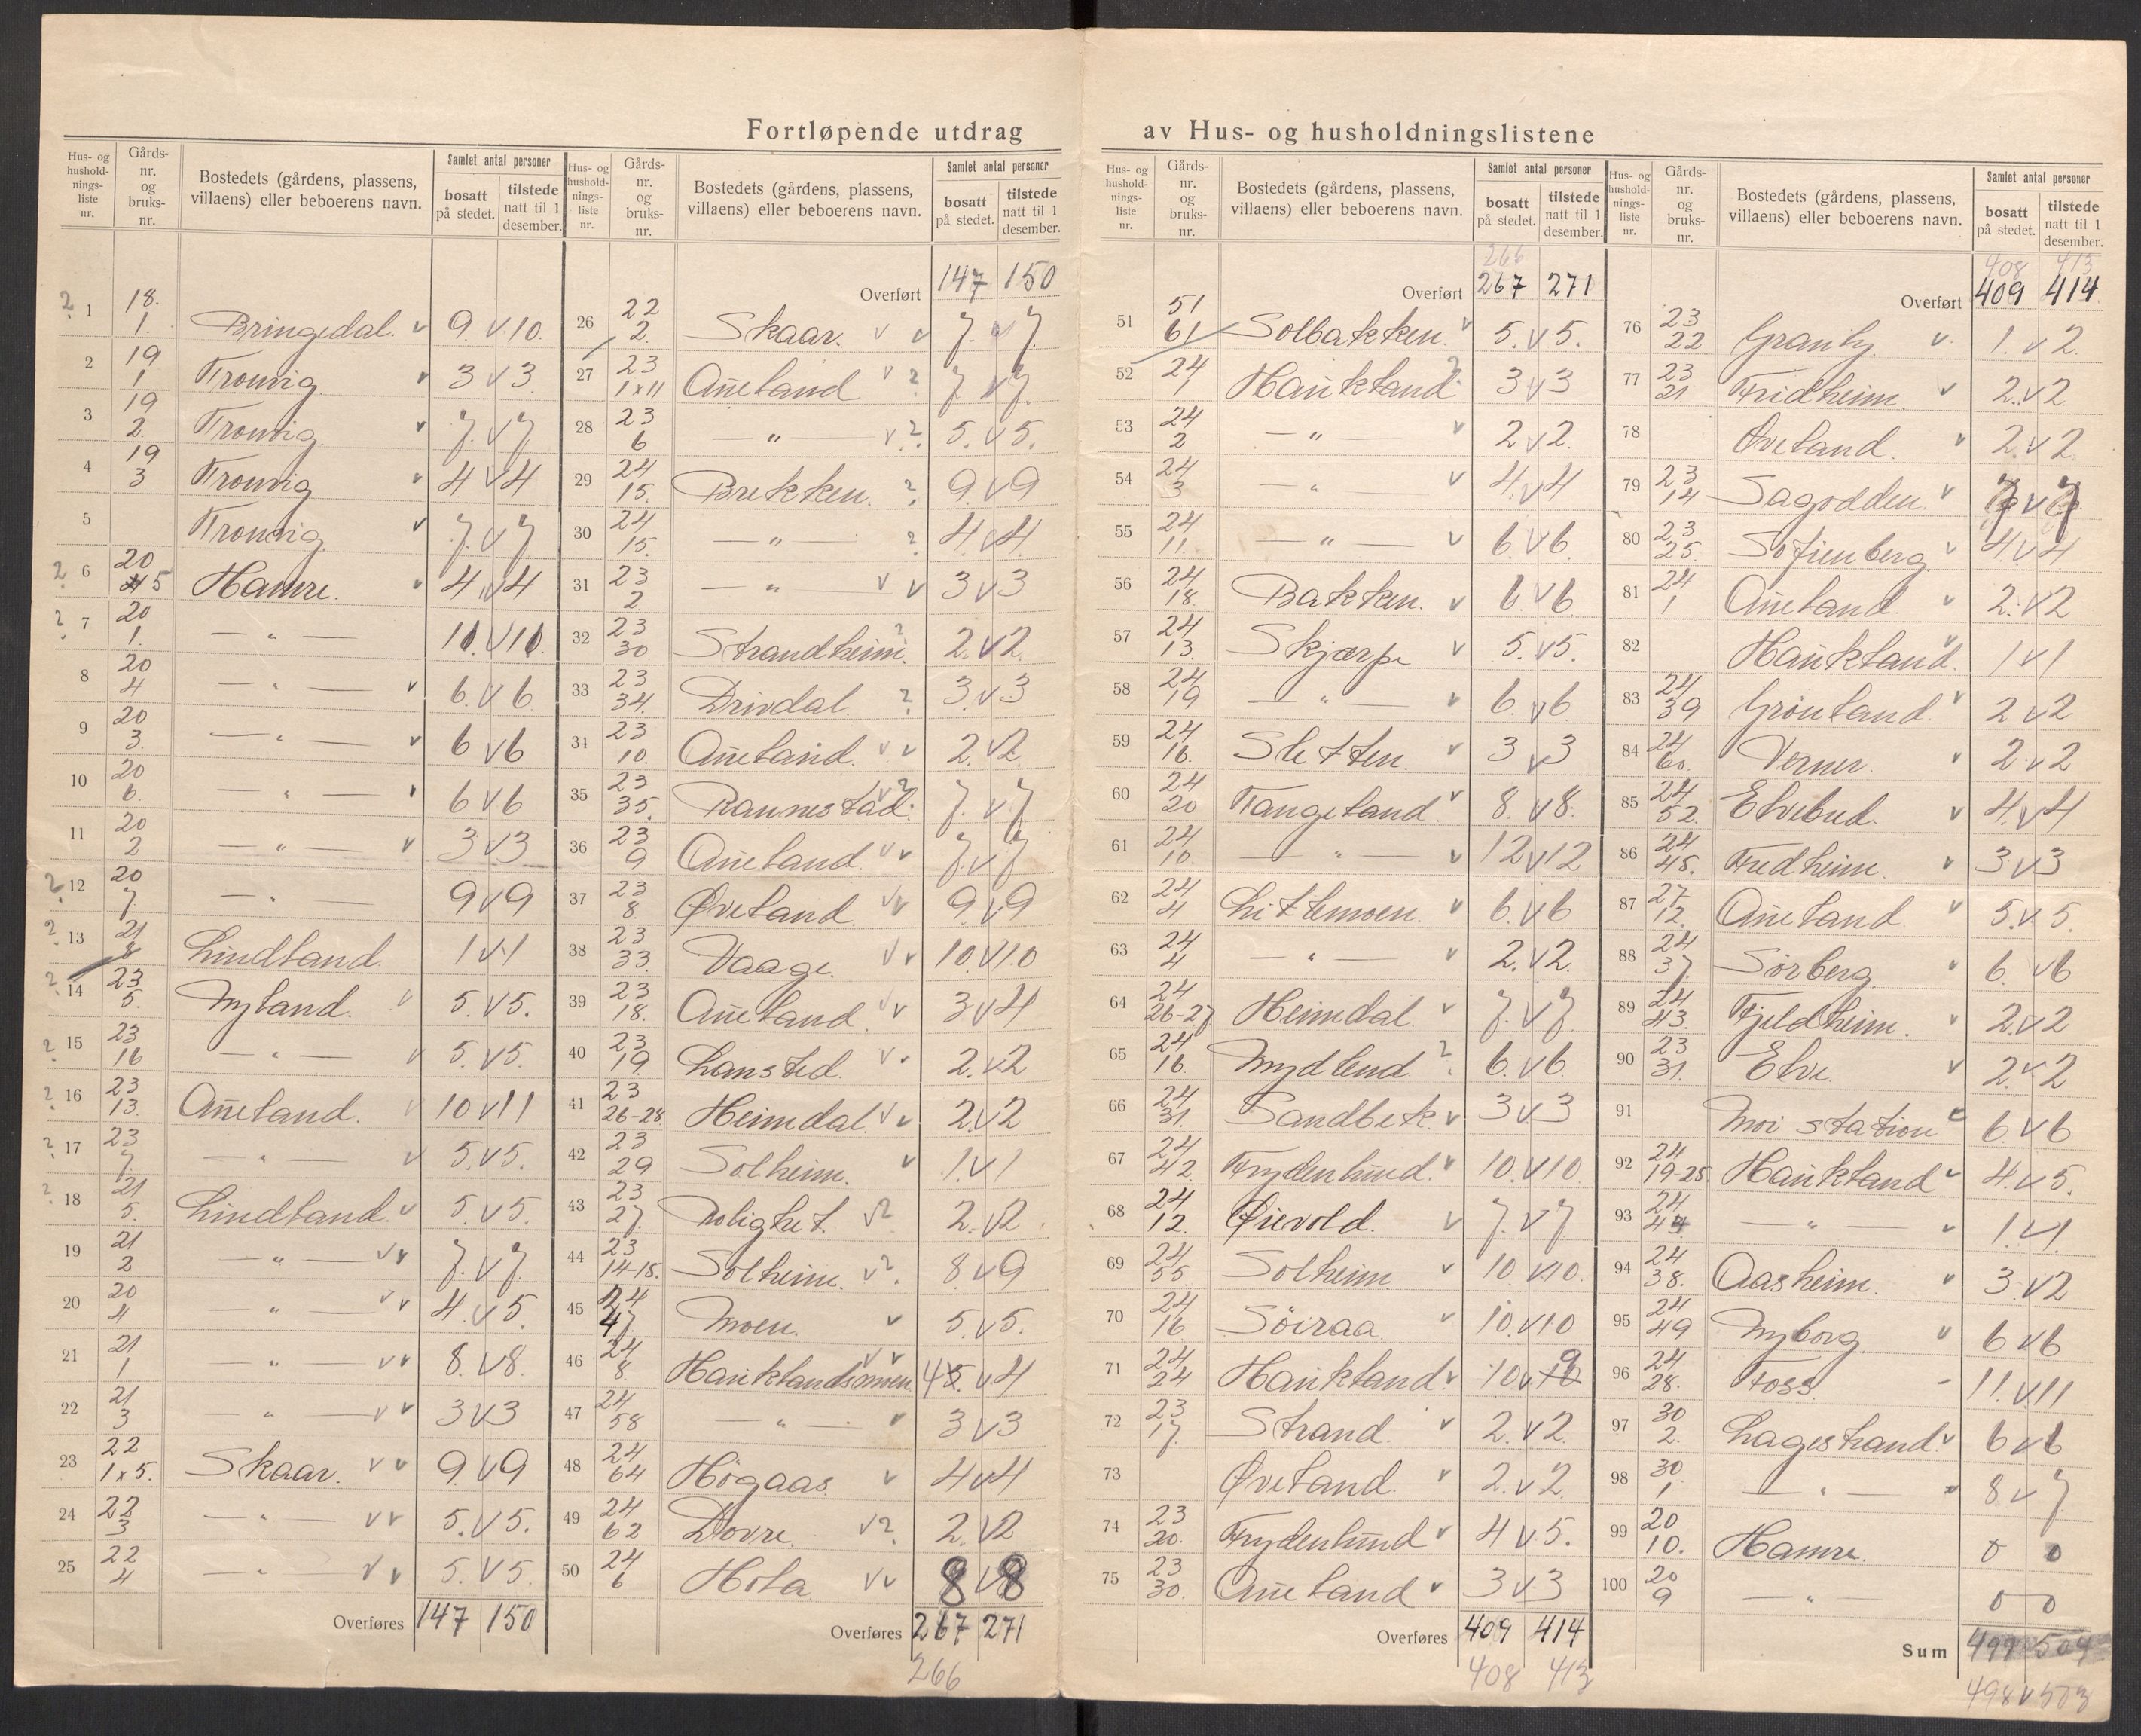 Fortløpende utdrag av Hus- og husholdningslistene
Hus- og hushold-nings-liste nr. | Gårds-nr. og bruks-nr. | Bostedets (gårdens, plassens, villaens) eller beboerens navn. | Samlet antal personer | bosatt på stedet. | tilstede natt til 1 desember.
? 1 18. 1. Bringedal. v 9 v 10.
2 19 1 Tronvig. v 3 v 3.
3 19 2. Tronvig. v 7 v 7
4 19 3 Tronvig v 4 v 4
5 Tronvig. v 7 v 7
? 6 20 5 Hamre. v 4 v 4
? 7 20 1. — " — 10. v 10.
8 20 4 — " — v 6 v 6
9 20 3. — " — v 6 v 6
10 20 6. — " — v 6 v 6
11 20 2 — " — v 3 v 3
? 12 20 7 — " 9 v 9
? 13 21 8 Lindland 1 v 1
? 14 23 5. Nyland. v 5. v 5.
? 15 23 16 — " — v 5. v 5.
? 16 23 13. Aüeland. v 10 v 11
? 17 23 7. — " — v 5. v 5.
? 18 21 5. Lindland. v 5. v 5.
19 21 2 — " — vv 7. v 7.
20 20 4 — " — vv 4. v 5.
21 21 1 — " — vv 8. v 8.
22 21 3 — " — vv 3 v 3
23 22 1x5. Skaar. vv 9 v 9
24 22 3 — " — vv 5. v 5.
25 22 4 — " vv 5. v 5.
Overføres 147 150
Hus- og hushold-nings-liste nr. | Gårds-nr. og bruks-nr. | Bostedets (gårdens, plassens, villaens) eller beboerens navn. | Samlet antal personer | bosatt på stedet. | tilstede natt til 1 desember.
Overført 147 150
26 22 2. Skaar. v v 7. v 7.
27 23 1x11 Aüeland v ? 7 v 7.
28 23 6 — " — v ? 5. v 5.
29 24 15. Brekken. ? 9 v 9
30 24 15. — " — ? 4. v 4.
31 23 2 — " v v 3 v 3
32 23 30 Strandheim. ? 2. v 2.
33 23 34. Drivdal. ? 3. v 3
34 23 10. Aüeland. v v 2. v 2.
35 23 35. Rannestad. v ? 7. v 7.
36 23 9 Aüeland. v v 7. v 7
37 23 8. Øveland vv 9. v 9
38 23 33. Vaage. v v 10. v 10
39 23 18. Aüeland. v v 3 v 4
40 23 19 Lansted. v v 2. v 2
41 23 26-28 Heimdal. v v 2. v 2
42 23 29 Solheim. v 1 v 1
43 23 27. Rolighet. v ? 2. v 2.
44 23 14-15. Solheim. v ? 8 v 9
45 24 47. Moen. v 5. v 5.
46 24 8. Haüklandsmoen v v 4 5. v 4
47 24 58 — " — v 3 v 3
48 24 64 Högaas. v 4 v 4
49 24 62 Dovre. v ? 2. v 2
50 24 6 Hola. vv 8 v 8
Overføres 267 271
266
Hus- og hushold-nings-liste nr. | Gårds-nr. og bruks-nr. | Bostedets (gårdens, plassens, villaens) eller beboerens navn. | Samlet antal personer | bosatt på stedet. | tilstede natt til 1 desember.
266
Overført 267 271
51 51 61 Solbakken. v 5. v 5.
52 24 1 Haükland. ? 3 v 3
53 24 2 — " — v 2 v 2.
54 24 3 — " v 4. v 4
55 24 11. — " — v 6. v 6.
56 24 18. Bakken. v 6. v 6
57 24 13. Skjærpe v 5. v 5.
58 24 19 — " — v 6. v 6.
59 24 16. Sletten. v 3 v 3
60 24 20 Tangeland. v 8. v 8.
61 24 10. — " — v 12 v 12
62 24 4 Litlemoen. v 6. v 6
63 24 4 — " — v 2. v 2.
64 24 26-27 Heimdal. v 7. v 7.
65 24 16. Mydlend. ? 6. v 6.
66 24 31. Sandbek. v 3 v 3
67 24 42. Frydenlund. v 10. v 10.
68 24 12. Øievold. v 7. v 7
69 24 55. Solheim v 10. v 10.
70 24 16 Söiraa v 10. v 10
71 24 24 Haükland. v 10 v 10 9
72 23 17. Strand. v 2. v 2.
73 Øveland. v 2. v 2.
74 23 20. Frydenlund v 4 v 5.
75 23 30. Aüeland v 3 v 3
Overføres 409 414
408 413
Hus- og hushold-nings-liste nr. | Gårds-nr. og bruks-nr. | Bostedets (gårdens, plassens, villaens) eller beboerens navn. | Samlet antal personer | bosatt på stedet. | tilstede natt til 1 desember.
408 413
Overført 409 414
76 23 22 Granly. v. 1. v 2.
77 23 21. Fridheim. v 2. v 2.
78 Øveland. v 2. v 2
79 23 14 Sagodden. v 7 v 7
80 23 25. Sofienberg. v 4. v 4
81 24 1 Aüeland. v 2. v 2
82 Haükland. v 1 v 1
83 24 39 Grönland. v 2 v 2
84 24 60. Verner. v 2. v 2
85 24 52. Elvebud. v 4. v 4
86 24 45. Fredheim. v 3 v 3
87 27 12. Aüeland v 5. v 5.
88 24 37. Sörberg v 6. v 6
89 24 43. Fjeldheim. v 2. v 2
90 23 31. Elve. v 2. v 2
91 Moi station v 6. v 6
92 24 19-25. Haükland v 4. v 5.
93 24 44. — " — v 1. v 1.
94 24 38. Aasheim. v 3. v 2
95 24 49 Nyborg. v 6 v 6
96 24 28. Foss. - 11. v 11
97 30 2. Lagestrand. v 6 v 6
98 30. 1 — " — 8 v 7
99 20 10. Hamre. 0 0
100 20 9 — " — 0 0
Sum 499 504
498 v 503